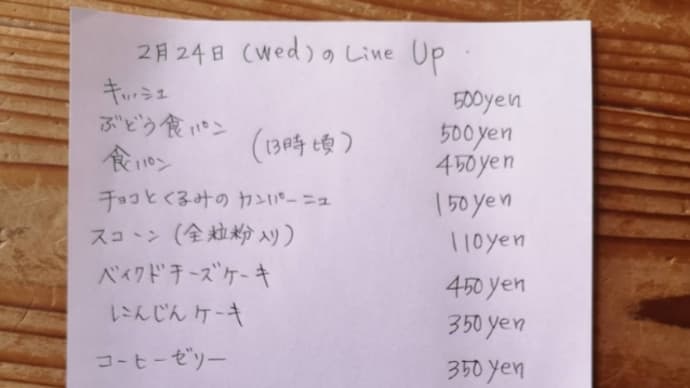 2月24日(Wed)のLine Up
キッシュ 500yen
ぶどう食パン 500yen
(13時頃)
食パン 450yen
チョコとくるみのカンパーニュ 150yen
スコーン(全粒粉入り) 110yen
ベイクドチーズケーキ 450yen
にんじんケーキ 350yen
コーヒーゼリー 350yen